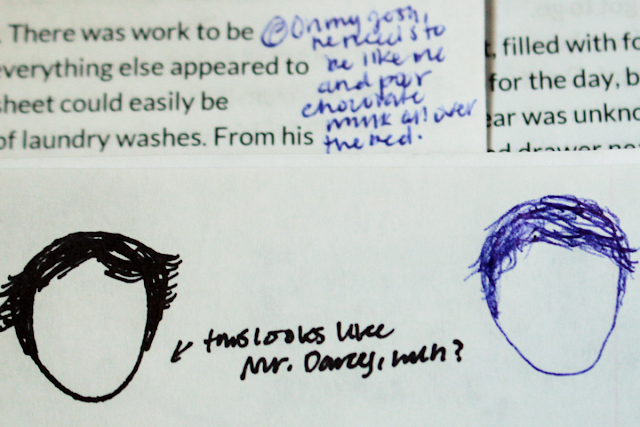 . There was work to be
everything else appeared to
sheet could easily be
of laundry washes. From his
Oh my gosh,
he needs to
be like me
and pour
chocolate
milk all over
the bed.
, filled with fo
for the day, b
ear was unkno
d drawer
this looks like
Mr. Darcy, huh?